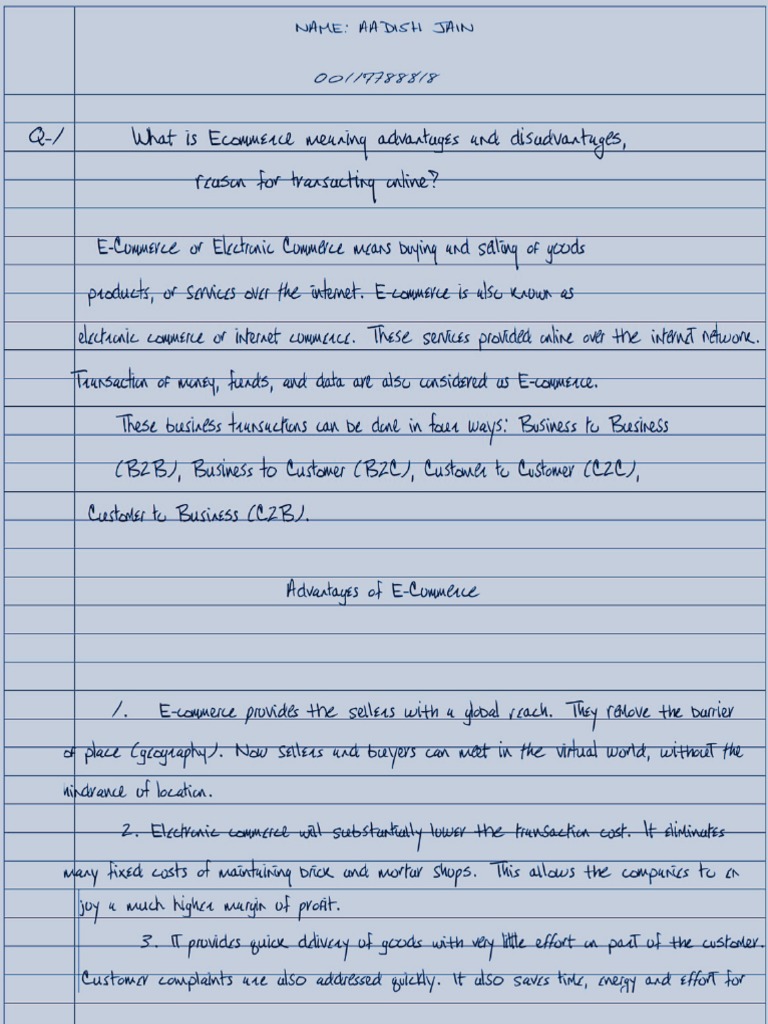 NAME: AADISH JAIN
00117788818
Q-1 What is Ecommerce meaning advantages and disadvantages,
reason for transacting online?
E-Commerce or Electronic Commerce means buying and selling of goods
products, or services over the internet. E-commerce is also known as
electronic commerce or internet commerce. These services provided online over the internet network.
Transaction of money, funds, and data are also considered as E-commerce.
These business transactions can be done in four ways: Business to Business
(B2B), Business to Customer (B2C), Customer to Customer (C2C),
Customer to Business (C2B).
Advantages of E-Commerce
1. E-commerce provides the sellers with a global reach. They remove the barrier
of place (geography). Now sellers and buyers can meet in the virtual world, without the
hindrance of location.
2. Electronic commerce will substantially lower the transaction cost. It eliminates
many fixed costs of maintaining brick and mortar shops. This allows the companies to en
joy a much higher margin of profit.
3. It provides quick delivery of goods with very little effort on part of the customer.
Customer complaints are also addressed quickly. It also saves time, energy and effort for